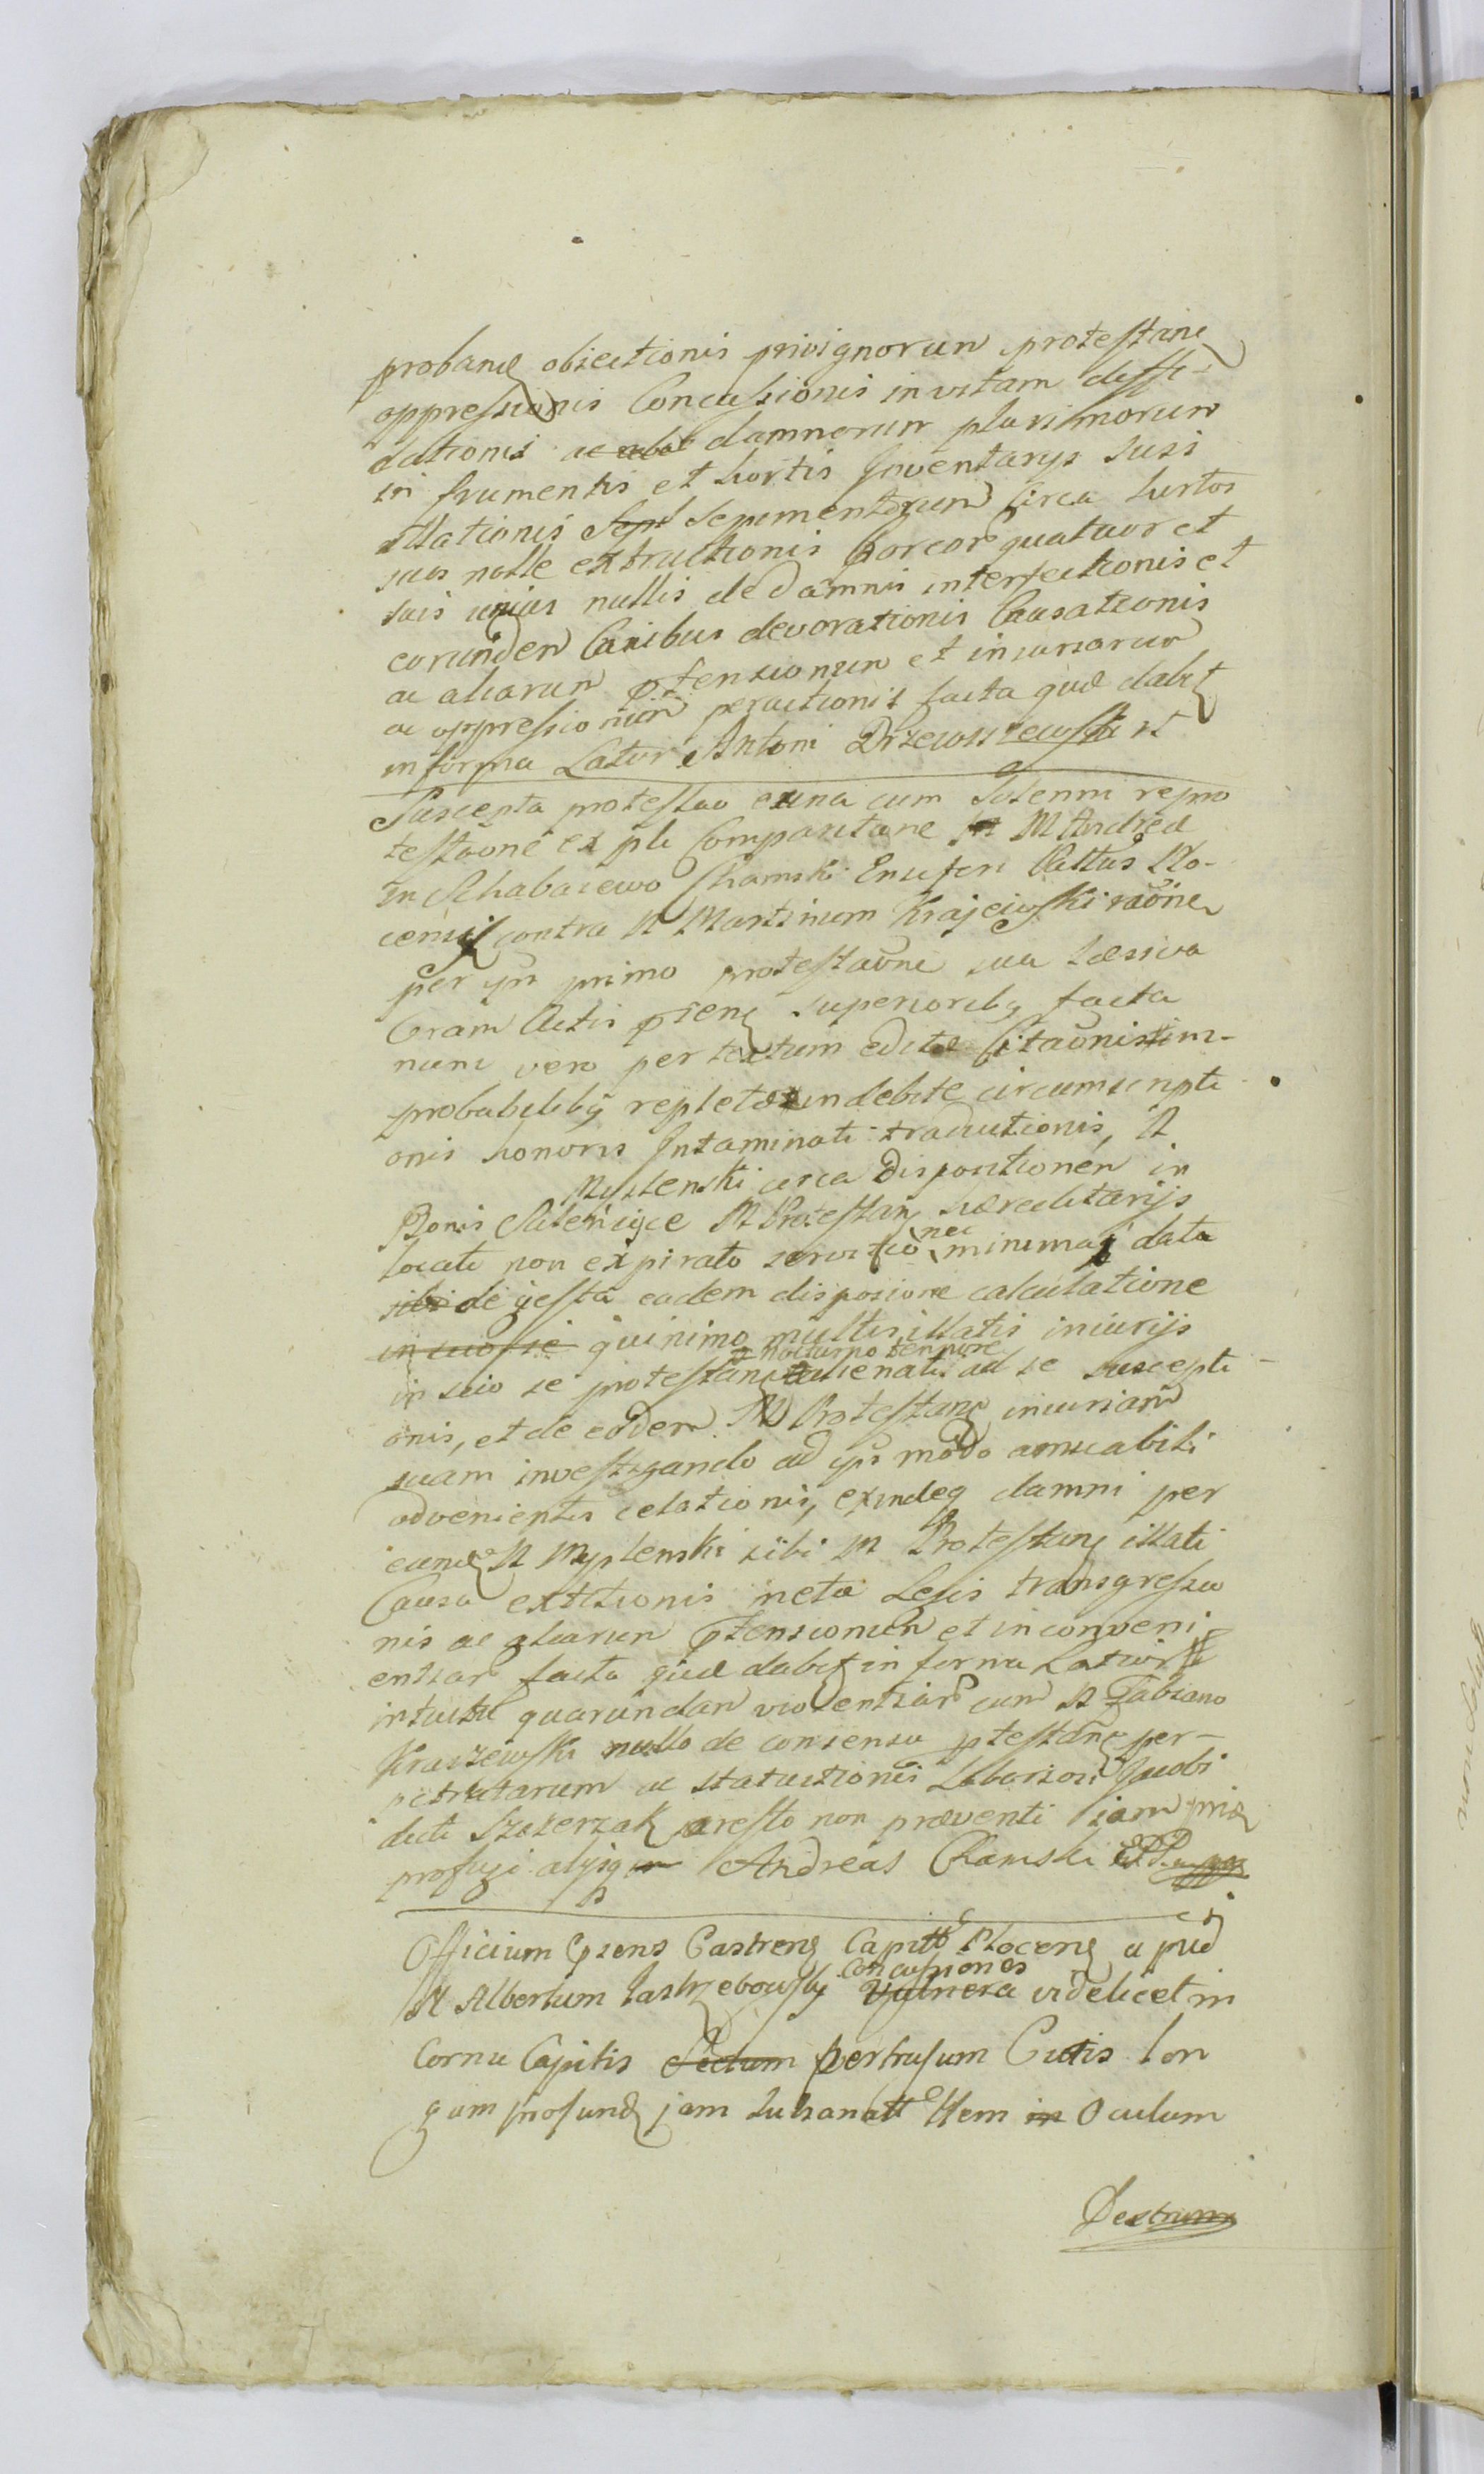 proband obiectionis privignorum protestane
oppressionis Concussionis in vitam diffi-
dationis ac damnorum plurimorum
in frumentis et hortis Inventarijs suis
illationis Sep Sepimentorum circa hortos
suos nolle extructionis Porcor quatuor et
suis unius nullis de damnis interfectionis et
eorunden Canibus devorationis Causationis
ac aliarum ptensionum et iniuriarum
ac oppressionum peractionis facta quæ dabit
in forma Latior Antoni Drzewoszewski
Suscepta protestao exuna cum Solenni repro
testaone ex ple Comparitane M Andreæ
in Chamski Ensiferi Plo-
censis contra N Martinum Krajewski raone
per ipn primo protestaone sua læsiva
Coram Actis psens superiorib facta
nunc vero per textum editæ Citaonis im-
probabilib repletæ indebite circumscripti
onis honoris Intaminati traductionis, N
Myslenski circa dispositionem in
Bonis N Protestan hæreditarijs
locati non expirato servitio nec minimaq data
sibi de gesta eadem disposione calculatione
in suo se quinimo multis illatis iniurijs
in suo se protestan nocturno tempore ad se suscepti-
onis, et de eodem M Protestans iniuriam
suam investigando ad ipn modo amicabili
advenientis celationis, exindeq damni per
eund N Myslenski sibi M Protestans illati
Causa extitionis meta Legis transgressio
nis ac aliarum ptensionum et inconveni
entiar facta quæ dabit in forma Latiori
intuitu quarundam violentiar cum N Fabiano
Kraszewski nullo de consensu ptestans per-
petratarum ac statuitionis Laboriosi Jacobi
dicti aresto non præventi iam
profugi alijsq Andreas Chamski
Officium psens Castrens Capitt Plocens apud
N Albertum Jastrzebowski Concussiones Vulnera videlicet in
Cornu Capitis Sectum pertusum Cutis lon
gum profund jam Item in Oculum
Dextrum